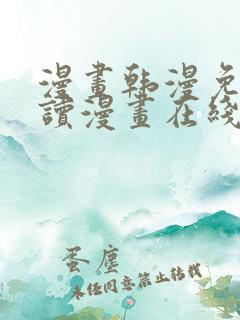 漫畫韩漫免
讀漫畫在綫
蛋塵
未经同意禁止转载